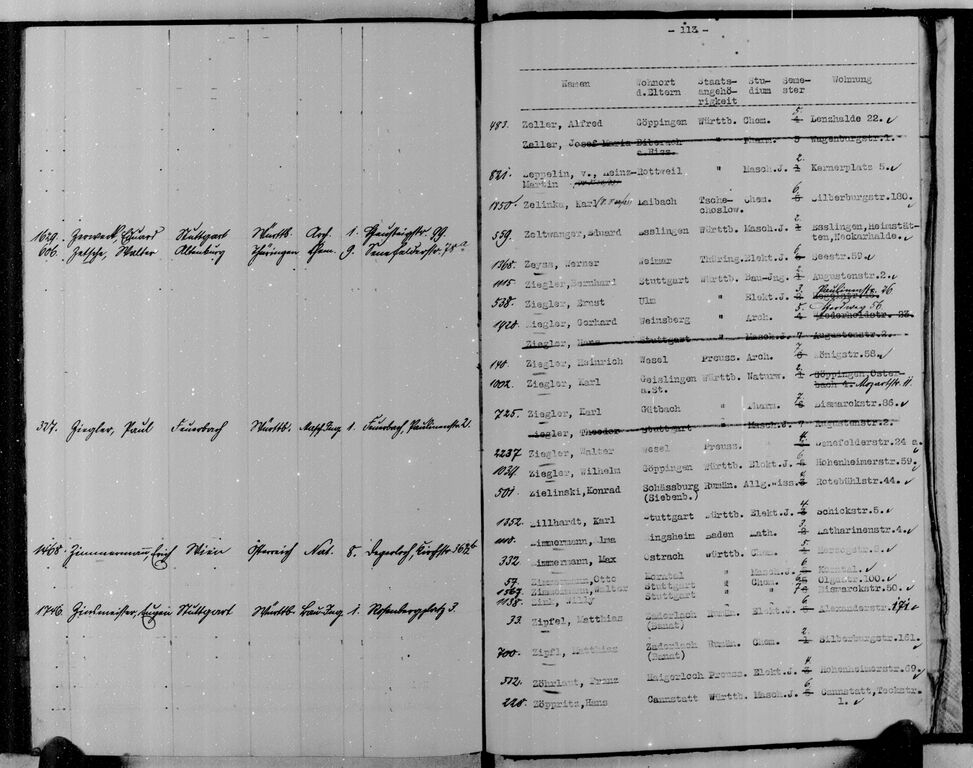 1629. Zerweck, Eduard Stuttgart Württb. Arch. 1.
606. Zetsche, Walter Altenburg Thüringen Chem. 9. Senefelderstr. 78a
327. Ziegler, Paul Feuerbach Württb. Masch.Ing. 1. Feuerbach, Paulinenstr. 2.
1468. Zimmermann, Erich Wien Österreich Nat. 8. Degerloch,
1746. Eugen Stuttgart Württb. Bau-Ing. 1. Rosenbergplatz 3.
- 113 -
Namen Wohnort Staats- Stu- Seme- Wohnung
d.Eltern angehö- dium ster
rigkeit
5.
483. Zeller, Alfred Göppingen Württb. Chem. 4 Lenzhalde 22.
Zeller, Josef Maria Biberach " Pharm. 3 Wagenburgstr.1.
a.Riss.
2.
821. Zeppelin, v., Heinz- Rottweil " Masch.J. 1 Kernerplatz 5.
Martin
6
1850. Zelinka, Karl Laibach Tsche- Chem. 5 Silberburgstr.180.
choslow.
2.
559. Zoltwanger, Eduard Esslingen Württb. Masch.J. 1 Esslingen,Heimstät-
ten,Neckarhalde.
6
1365. Zeyss, Werner Weimar Thüring. Elekt.J. Seestr.59
2
1115. Ziegler, Bernhard Stuttgart Württb. Bau-Jng. 1 Augustenstr.2.
3. Paulinenstr. 26
538. Ziegler, Ernst Ulm " Elekt.J. 2
5.
1420. Ziegler, Gerhard Weinsberg " Arch. 4 Wiederholdstr. 23.
Ziegler, Hans Stuttgart " Masch.J. 7 Augustenstr.2.
7
140. Ziegler, Heinrich Wesel Preuss. Arch. 6 Königstr.58.
2.
1002. Ziegler, Karl Geislingen Württb. Naturw. 1 Göppingen,Osten-
a.St. bach 4. Mozartstr. 11.
725. Ziegler, Karl Gütbach " Pharm. Bismarckstr.86.
Ziegler, Theodor Stuttgart " Masch.J. 7 Augustenstr.2.
2237 Ziegler, Walter Wesel Preuss. Senefelderstr.24 a.
6
1024. Ziegler, Wilhelm Göppingen Württb. Elekt.J. 5 Hohenheimerstr.59.
501. Zielinski, Konrad Schässburg Rumän. Allg.Wiss. 3 Rotebühlstr.44.
(Siebenb.)
4
1352. Zillhardt, Karl Stuttgart Württb. Elekt.J. 3 Schickstr.5.
3
Zimmermann, Alma Singsheim Baden Math. 2 Katharinenstr.4.
6
332. Zimmermann, Max Ostrach Württb. Chem. 5 Herzogstr.8.
57. Zimmermann, Otto Korntal " Masch.J. Korntal.
1567. Zimmermann, Walter Stuttgart " Chem. Olgastr.100.
1138. Zink, Willy Stuttgart " " Bismarckstr.50.
6
33. Zipfel, Matthias Zaderlach Rumän. Elekt.J. 5 Alexanderstr.171
(Banat)
2.
700. Zipfl, Matthias Zaderlach Rumän. Chem. 1 Silberburgstr.161.
(Banat)
4
512. Zöhrlaut, Franz Haigerloch Preuss. Elekt.J. 3 Hohenheimerstr.69.
6.
228. Zöppritz, Hans Cannstatt Württb. Masch.J. 5 Cannstatt, Teckstr.
1.